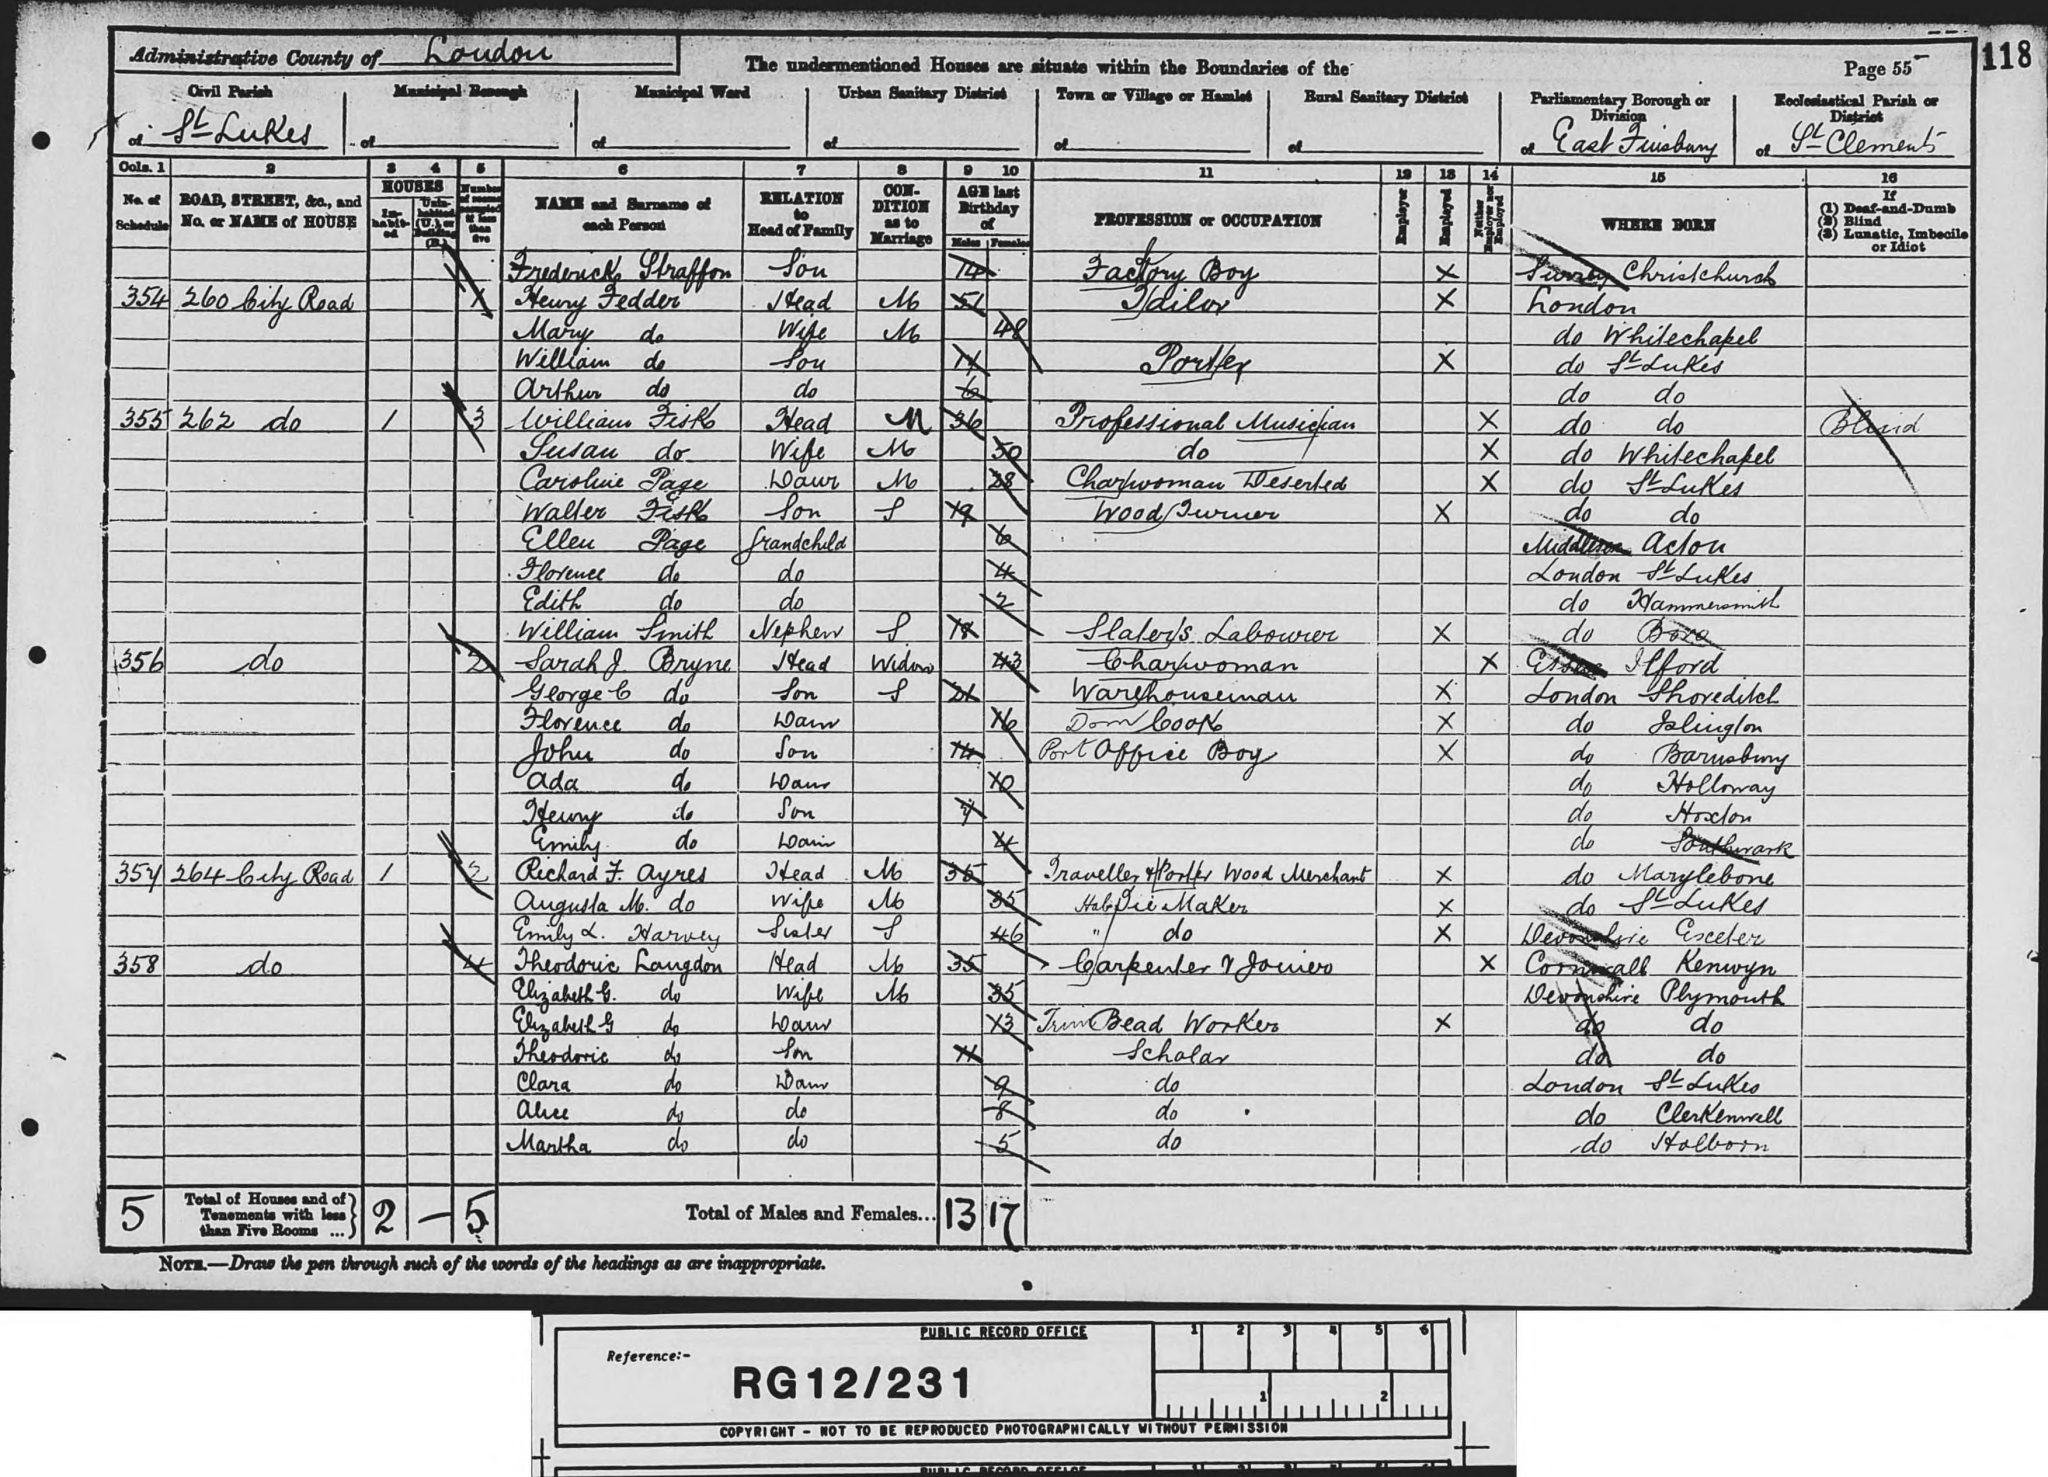 118
Administrative County of London
The undermentioned Houses are situate within the Boundaries of the
Page 55
Civil Parish of St Lukes
Municipal Borough of
Municipal Ward of
Urban Sanitary District of
Town or Village or Hamlet of
Rural Sanitary District of
Parliamentary Borough or Division of East Finsbury
Ecclesiastical Parish or District of St Clements
Cols. 1 2 3 4 5 6 7 8 9 10 11 12 13 14 15 16
No. of Schedule
ROAD, STREET, &c., and No. or NAME of HOUSE
HOUSES
Inhabited
Uninhabited (U.), or Building (B.)
Number of rooms occupied if less than five
NAME and Surname of each Person
RELATION to Head of Family
CONDITION as to Marriage
AGE last Birthday of
Males Females
PROFESSION or OCCUPATION
Employer
Employed
Neither Employer nor Employed
WHERE BORN
If (1) Deaf-and-Dumb (2) Blind (3) Lunatic, Imbecile or Idiot
Frederick Straffon Son 14 Factory Boy X Surrey Christchurch
354 260 City Road 1 Henry Fedder Head M 51 Tailor X London
Mary do Wife M 48 do Whitechapel
William do Son 14 Porter X do St Lukes
Arthur do do 6 do do
355 262 do 1 3 William Fisk Head M 36 Professional Musician X do do Blind
Susan do Wife M 50 do X do Whitechapel
Caroline Page Daur M 28 Charwoman Deserted X do St Lukes
Walter Fisk Son S 19 Wood Turner X do do
Ellen Page Grandchild 6 Middlesex Acton
Florence do do 4 London St Lukes
Edith do do 2 do Hammersmith
William Smith Nephew S 18 Slater's Labourer X do Boro
356 do 2 Sarah J. Bryne Head Widow 43 Charwoman X Essex Ilford
George C do Son S 21 Warehouseman X London Shoreditch
Florence do Daur 16 Dom Cook X do Islington
John do Son 14 Port Office Boy X do Barnsbury
Ada do Daur 10 do Holloway
Henry do Son 7 do Hoxton
Emily do Daur 4 do Southwark
357 264 City Road 1 2 Richard F. Ayres Head M 35 Traveller & Porter Wood Merchant X do Marylebone
Augusta M. do Wife M 35 Tie Maker X do St Lukes
Emily L. Harvey Sister S 46 " do X Devonshire Exeter
358 do 4 Theodoric Langdon Head M 35 Carpenter & Joiner X Cornwall Kenwyn
Elizabeth G. do Wife M 35 Devonshire Plymouth
Elizabeth G do Daur 13 Trim Bead Worker X do do
Theodoric do Son 11 Scholar do do
Clara do Daur 9 do London St Lukes
Alice do do 8 do do Clerkenwell
Martha do do 5 do do Holborn
5 Total of Houses and of Tenements with less than Five Rooms ... 2 — 5 Total of Males and Females... 13 17
NOTE.—Draw the pen through such of the words of the headings as are inappropriate.
PUBLIC RECORD OFFICE
1 2 3 4 5 6
Reference:-
RG12/231
1 2
COPYRIGHT - NOT TO BE REPRODUCED PHOTOGRAPHICALLY WITHOUT PERMISSION
PUBLIC RECORD OFFICE